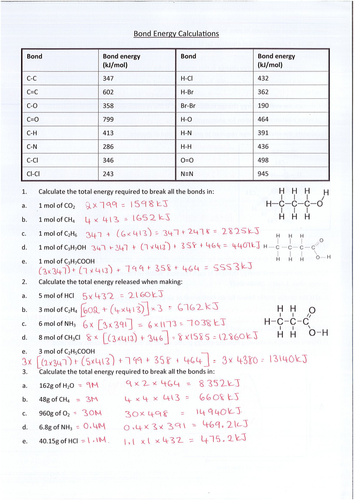 Bond Energy Calculations
Bond Bond energy (kJ/mol) Bond Bond energy (kJ/mol)
C-C 347 H-Cl 432
C=C 602 H-Br 362
C-O 358 Br-Br 190
C=O 799 H-O 464
C-H 413 N-H 391
C-N 286 H-H 436
C-Cl 346 O=O 498
Cl-Cl 243 N≡N 945
1. Calculate the total energy required to break all the bonds in:
a. 1 mol of CO₂ 2 x 799 = 1598 kJ
b. 1 mol of CH₄ 4 x 413 = 1652 kJ
c. 1 mol of C₂H₆ 347 + (6x413) = 347 + 2478 = 2825 kJ
d. 1 mol of C₃H₇OH 347 + 347 + (7x413) + 358 + 464 = 4407 kJ
e. 1 mol of C₃H₇COOH
(3x347) + (7x413) + 799 + 358 + 464 = 5553 kJ
2. Calculate the total energy released when making:
a. 5 mol of HCl 5 x 432 = 2160 kJ
b. 3 mol of C₂H₄ [602 + (4x413)] x 3 = 6762 kJ
c. 6 mol of NH₃ 6 x [3x391] = 6 x 1173 = 7038 kJ
d. 8 mol of CH₃Cl 8 x [(3x413) + 346] = 8 x 1585 = 12860 kJ
e. 3 mol of C₂H₅COOH
3x [(2x347) + (5x413) + 799 + 358 + 464] = 3 x 4380 = 13140 kJ
3. Calculate the total energy required to break all the bonds in:
a. 162g of H₂O = 9M 9 x 2 x 464 = 8352 kJ
b. 48g of CH₄ = 3M 4 x 4 x 413 = 6608 kJ
c. 960g of O₂ = 30M 30 x 498 = 14940 kJ
d. 6.8g of NH₃ = 0.4M 0.4 x 3 x 391 = 469.2 kJ
e. 40.15g of HCl = 1.1M 1.1 x 1 x 432 = 475.2 kJ